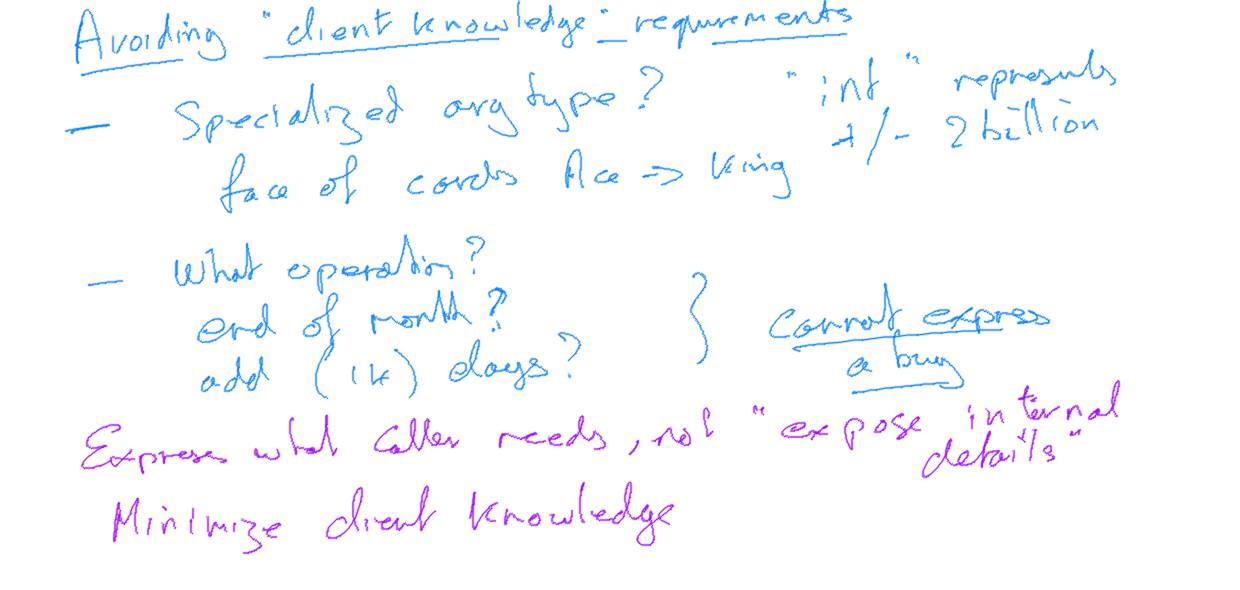 Avoiding "client knowledge" requirements
— Specialized arg type? "int" represents
+/- 2 billion
face of cards Ace => King
— What operation?
end of month?
add (1k) days? } Cannot express
a bug
Express what caller needs, not "expose internal
details"
Minimize client knowledge